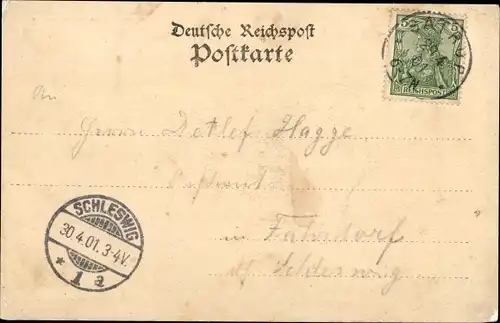 Deutsche Reichspost
Postkarte
SATRUP
REICHSPOST
An
Herrn Detlef Hagge
in Fahrdorf
SCHLESWIG
30.4.01.3-4V.
* 1 a